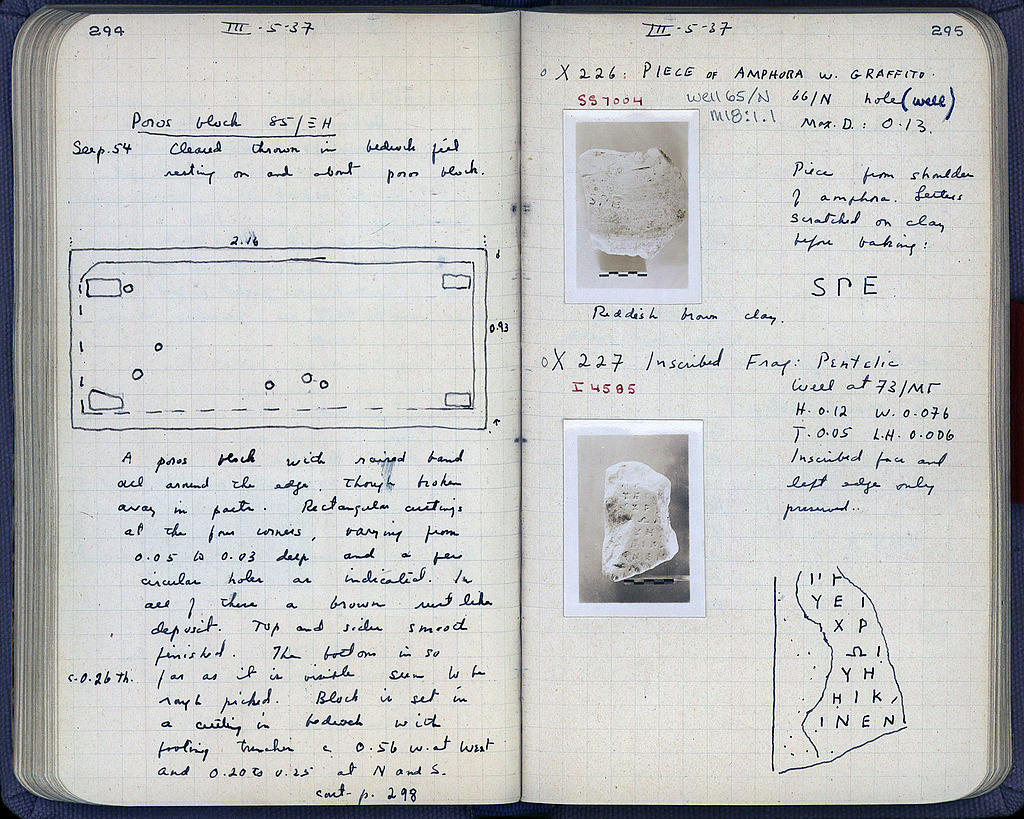 294
III-5-37
Poros block 85/ΞH
See p. 54 Cleared thrown in bedrock fill
resting on and about poros block.
2.16
0.93
A poros block with raised band
all around the edge, though broken
away in parts. Rectangular cuttings
at the four corners, varying from
0.05 to 0.03 deep and a few
circular holes as indicated. In
all of these a brown rust like
deposit. Top and sides smooth
finished. The bottom in so
c. 0.26 th. far as it is visible seem to be
rough picked. Block is set in
a cutting in bedrock with
footing trenches c. 0.56 w. at West
and 0.20 to 0.25 at N and S.
cont. p. 298
III-5-37
295
X 226: PIECE OF AMPHORA W. GRAFFITO.
SS 7004 well 65/N 66/N hole (well)
M18:1.1
Max. D.: 0.13.
Piece from shoulder
of amphora. Letters
scratched on clay
before baking:
SΠE
Reddish brown clay.
X 227 Inscribed Frag: Pentelic
I 4585 Well at 73/ΜΓ
H. 0.12 W. 0.076
T. 0.05 L.H. 0.006
Inscribed face and
left edge only
preserved..
Y E I
X P
Ω I
Y H
H I K
I N E N